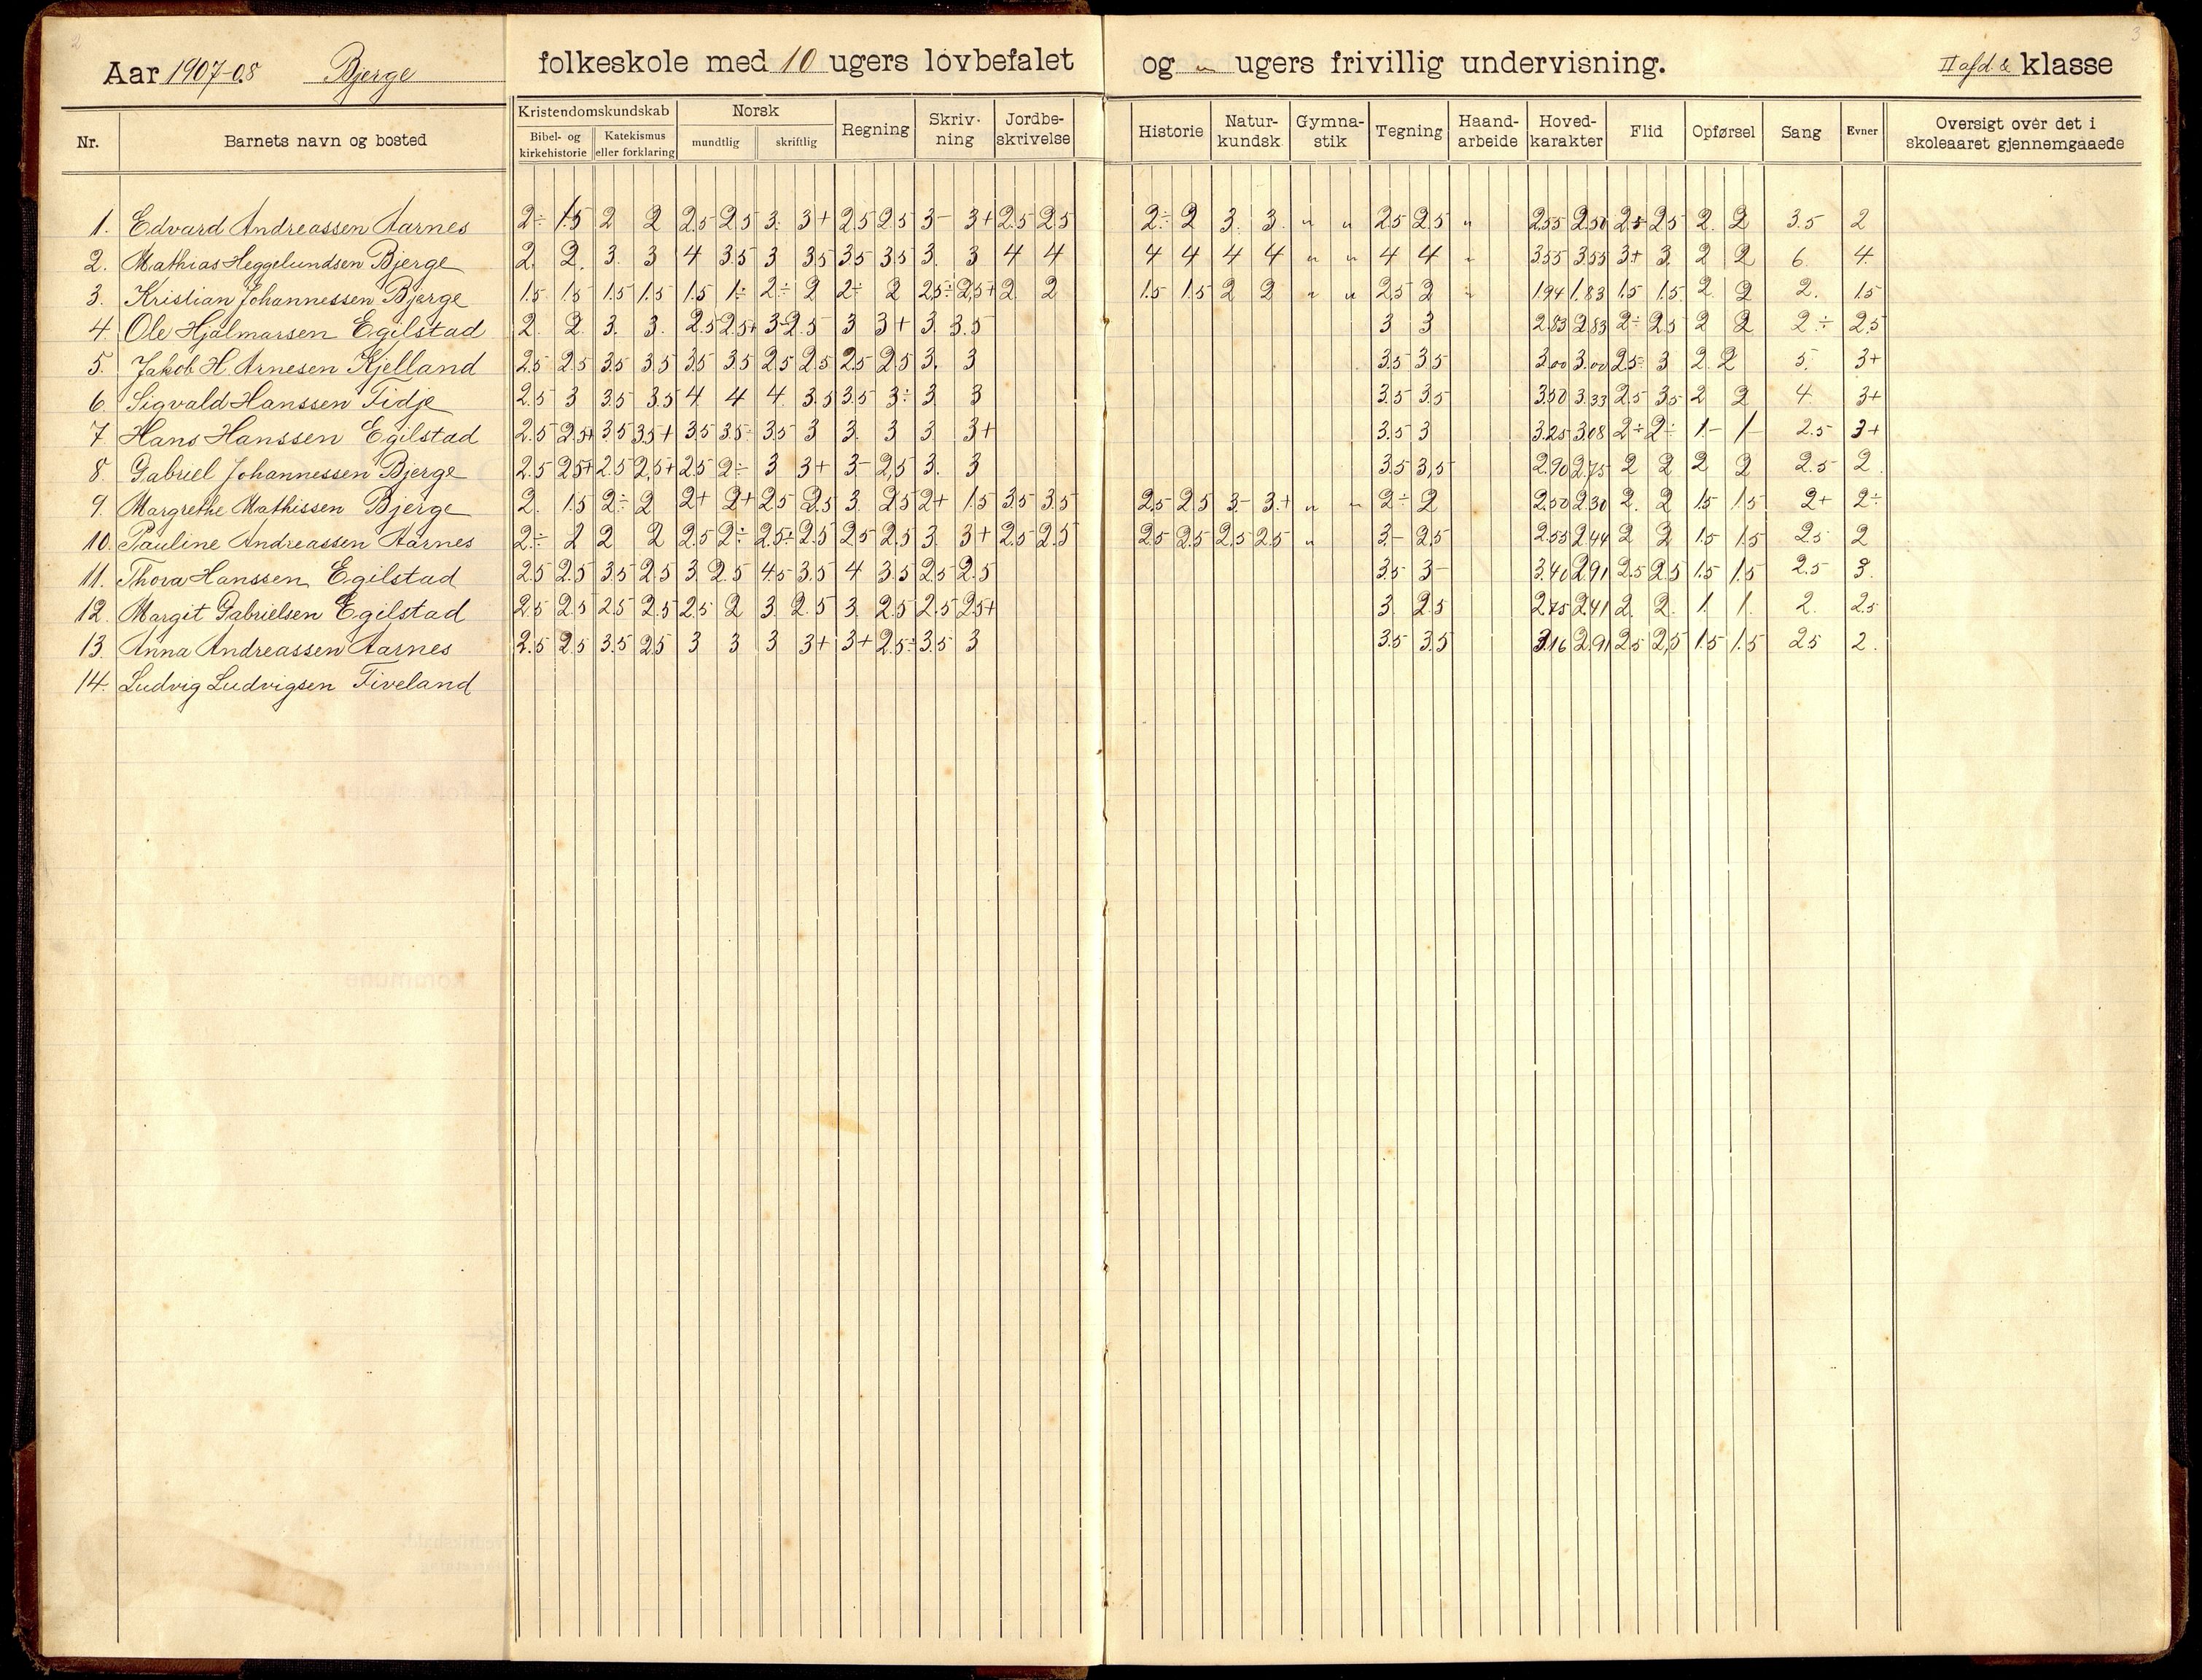 2
3
Aar 1907-08 Bjerge folkeskole med 10 ugers lovbefalet og " ugers frivillig undervisning. II afd klasse
Nr. Barnets navn og bosted Kristendomskundskab Norsk Regning Skriv-ning Jordbe-skrivelse Historie Natur-kundsk. Gymna-stik Tegning Haand-arbeide Hoved-karakter Flid Opførsel Sang Evner Oversigt over det i skoleaaret gjennemgaaede
Bibel- og kirkehistorie Katekismus eller forklaring mundtlig skriftlig
1. Edvard Andreassen Aarnes 2÷ 1.5 2 2 2.5 2.5 3. 3+ 2.5 2.5 3- 3+ 2.5 2.5 2÷ 2 3. 3. " " 2.5 2.5 " 2.55 2.50 2.5 2.5 2. 2 3.5 2
2. Mathias Heggelundsen Bjerge 2. 2. 3. 3 4 3.5 3 3.5 3.5 3.5 3. 3 4 4 4 4 4 4 " " 4 4 " 3.55 3.55 3+ 3. 2 2 6. 4.
3. Kristian Johannessen Bjerge 1.5 1.5 1.5 1.5 1.5 1÷ 2÷ 2 2÷ 2 2.5÷ 2.5+ 2 2 1.5 1.5 2 2 " " 2.5 2 " 1.94 1.83 1.5 1.5 2 2 2. 1.5
4. Ole Hjalmarsen Egilstad 2. 2. 3. 3. 2.5 2.5+ 3- 2.5 3 3+ 3. 3.5 3 3 2.83 2.83 2÷ 2.5 2 2 2÷ 2.5
5. Jakob H. Arnesen Kjelland 2.5 2.5 3.5 3.5 3.5 3.5 2.5 2.5 2.5 2.5 3. 3 3.5 3.5 3.00 3.00 2.5÷ 3 2. 2 5. 3+
6. Sigvald Hanssen Tidje 2.5 3 3.5 3.5 4 4 4. 3.5 3.5 3÷ 3. 3 3.5 3.5 3.50 3.33 2.5 3.5 2 2 4. 3+
7. Hans Hanssen Egilstad 2.5 2.5+ 3.5 3.5+ 3.5 3.5÷ 3.5 3 3. 3 3. 3+ 3.5 3 3.25 3.08 2÷ 2÷ 1- 1- 2.5 3+
8. Gabriel Johannessen Bjerge 2.5 2.5+ 2.5 2.5+ 2.5 2÷ 3 3+ 3- 2.5 3. 3 3.5 3.5 2.90 2.75 2 2 2 2 2.5 2.
9. Margrethe Mathissen Bjerge 2. 1.5 2÷ 2 2+ 2+ 2.5 2.5 3. 2.5 2+ 1.5 3.5 3.5 2.5 2.5 3- 3+ " " 2÷ 2 2.50 2.30 2. 2 1.5 1.5 2+ 2÷
10. Pauline Andreassen Aarnes 2÷ 2 2 2 2.5 2÷ 2.5÷ 2.5 2.5 2.5 3. 3+ 2.5 2.5 2.5 2.5 2.5 2.5 " 3- 2.5 2.55 2.44 2 2 1.5 1.5 2.5 2
11. Thora Hanssen Egilstad 2.5 2.5 3.5 2.5 3. 2.5 4.5 3.5 4 3.5 2.5 2.5 3.5 3- 3.40 2.91 2.5 2.5 1.5 1.5 2.5 3.
12. Margit Gabrielsen Egilstad 2.5 2.5 2.5 2.5 2.5 2 3. 2.5 3. 2.5 2.5 2.5+ 3. 2.5 2.75 2.41 2. 2. 1. 1. 2. 2.5
13. Anna Andreassen Aarnes 2.5 2.5 3.5 2.5 3 3 3 3+ 3+ 2.5÷ 3.5 3 3.5 3.5 3.16 2.91 2.5 2.5 1.5 1.5 2.5 2.
14. Ludvig Ludvigsen Fiveland